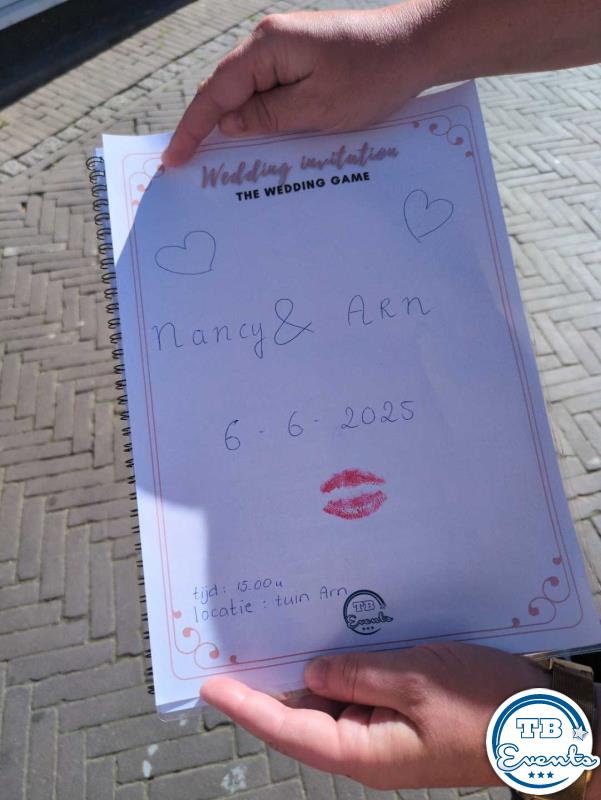 Wedding invitation
THE WEDDING GAME
Nancy & ARn
6 - 6 - 2025
tijd : 15.00u
locatie : tuin Arn
TB
Events
TB
Events